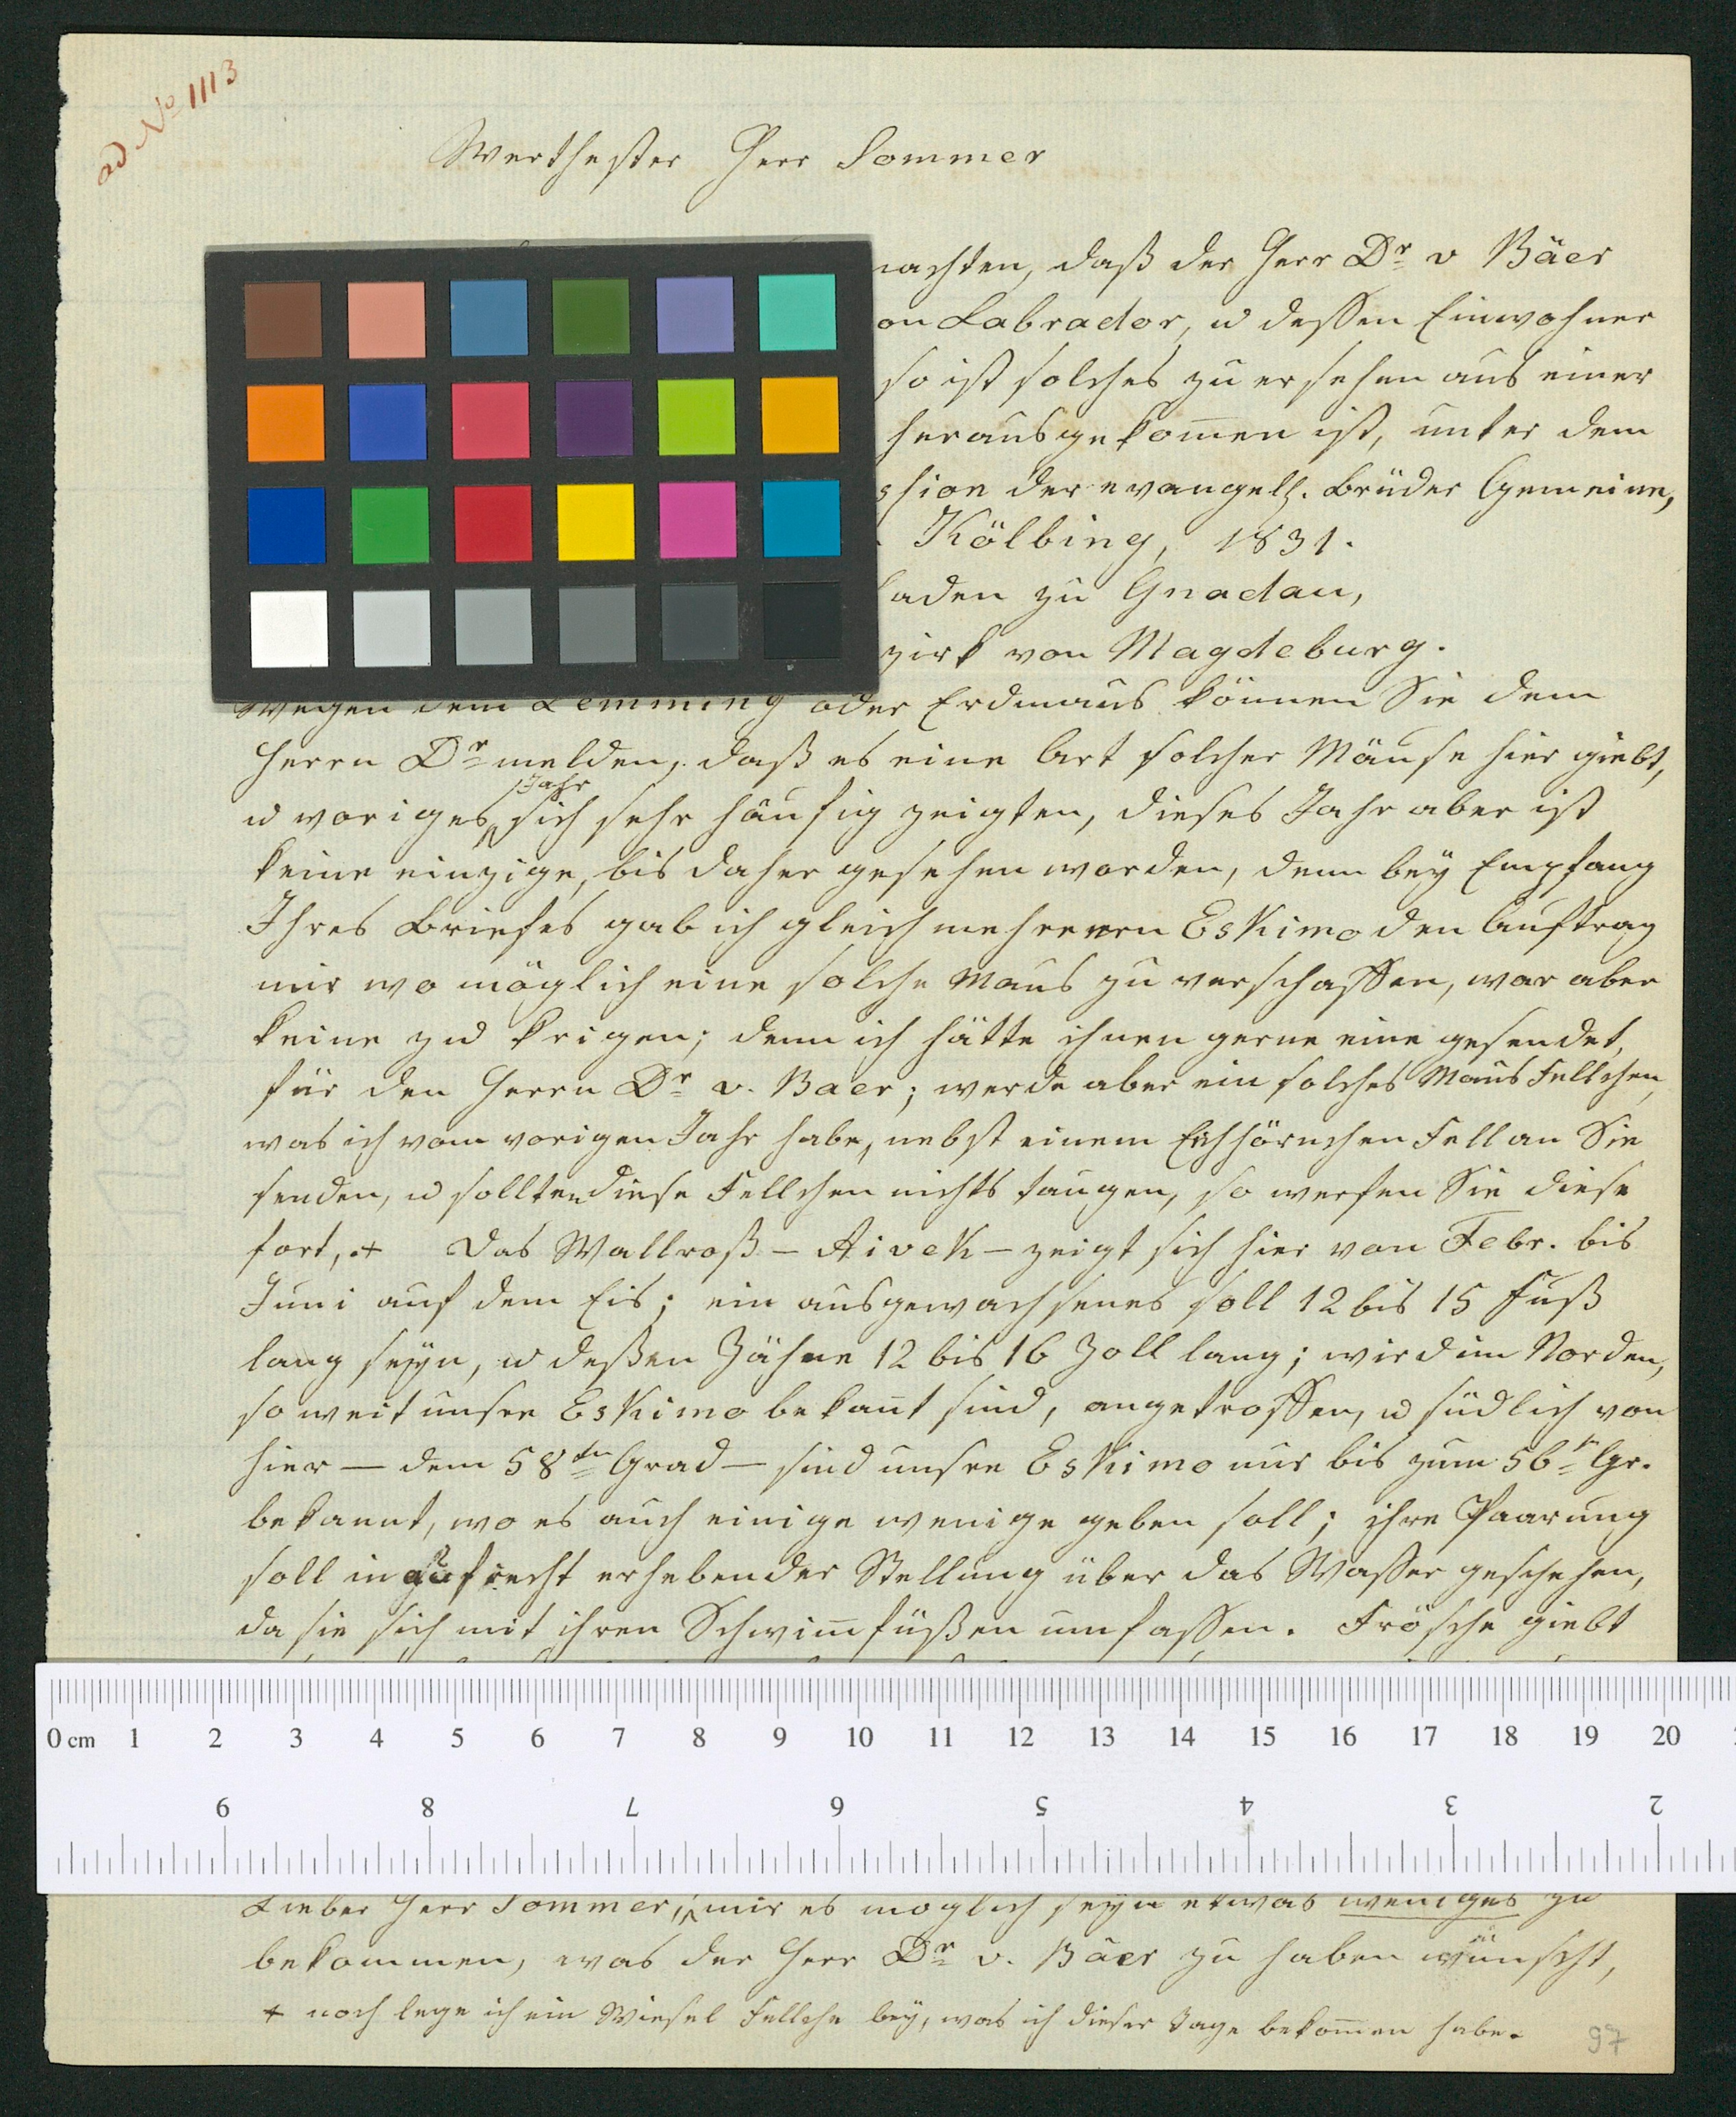 ad No 1113
Werthester Herr Sommer
machten, daß der Herr Dr v Bäer
on Labrador, u dessen Einwohner
so ist solches zu ersehen aus einer
herausgekom̄en ist, unter dem
ssion der evangelh. Brüder Gemeine,
Kölbing, 1831.
laden zu Gnadau,
zirk von Magdeburg.
Wegen dem Lemming oder Erdmaus können Sie dem
Herrn Dr melden, daß es eine Art solcher Mäuse hier giebt,
Jahr
u voriges sich sehr häufig zeigten, dieses Jahr aber ist
keine einzige, bis daher gesehen worden, denn bey Empfang
Ihres Briefes gab ich gleich mehreren Eskimo den Auftrag
mir wo möglich eine solche Maus zu verschaffen, war aber
keine zu krigen; denn ich hätte ihnen gerne eine gesendet,
für den Herrn Dr v. Baer; werde aber ein solches Maus Fellchen,
was ich vom vorigen Jahr habe, nebst einem Eichhörnchen Fell an Sie
senden, u sollten diese Fellchen nichts taugen, so werfen Sie diese
fort, + Das Wallroß – Aivek – zeigt sich hier von Febr. bis
Juni auf dem Eis; ein ausgewachsenes soll 12 bis 15 Fuß
lang seyn, u deßen Zähne 12 bis 16 Zoll lang; wird im Norden,
so weit unsre Eskimo bekan̄t sind, angetroffen, u südlich von
hier – dem 58ten Grad – sind unsre Eskimo nur bis zum 56n Gr.
bekannt, wo es auch einige wenige geben soll; ihre Paarung
soll in aufrecht erhebender Stellung über das Wasser geschehen,
da sie sich mit ihren Schwim̄füßen umfassen. Frösche giebt
0 cm 1 2 3 4 5 6 7 8 9 10 11 12 13 14 15 16 17 18 19 20
9 8 7 6 5 4 3 2
Lieber Herr Sommer, mir es möglich seyn etwas weniges zu
bekommen, was der Herr Dr v. Bäer zu haben wünscht,
+ noch lege ich ein Wiesel Fellche bey, was ich dieser Tage bekom̄en habe.
97